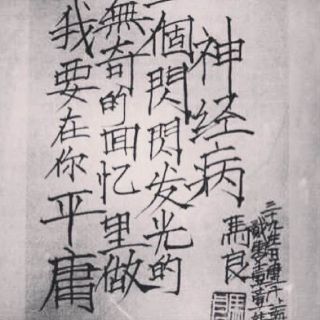 我要在你平庸
無奇的回忆里做
一個閃閃发光的
神经病
馬良